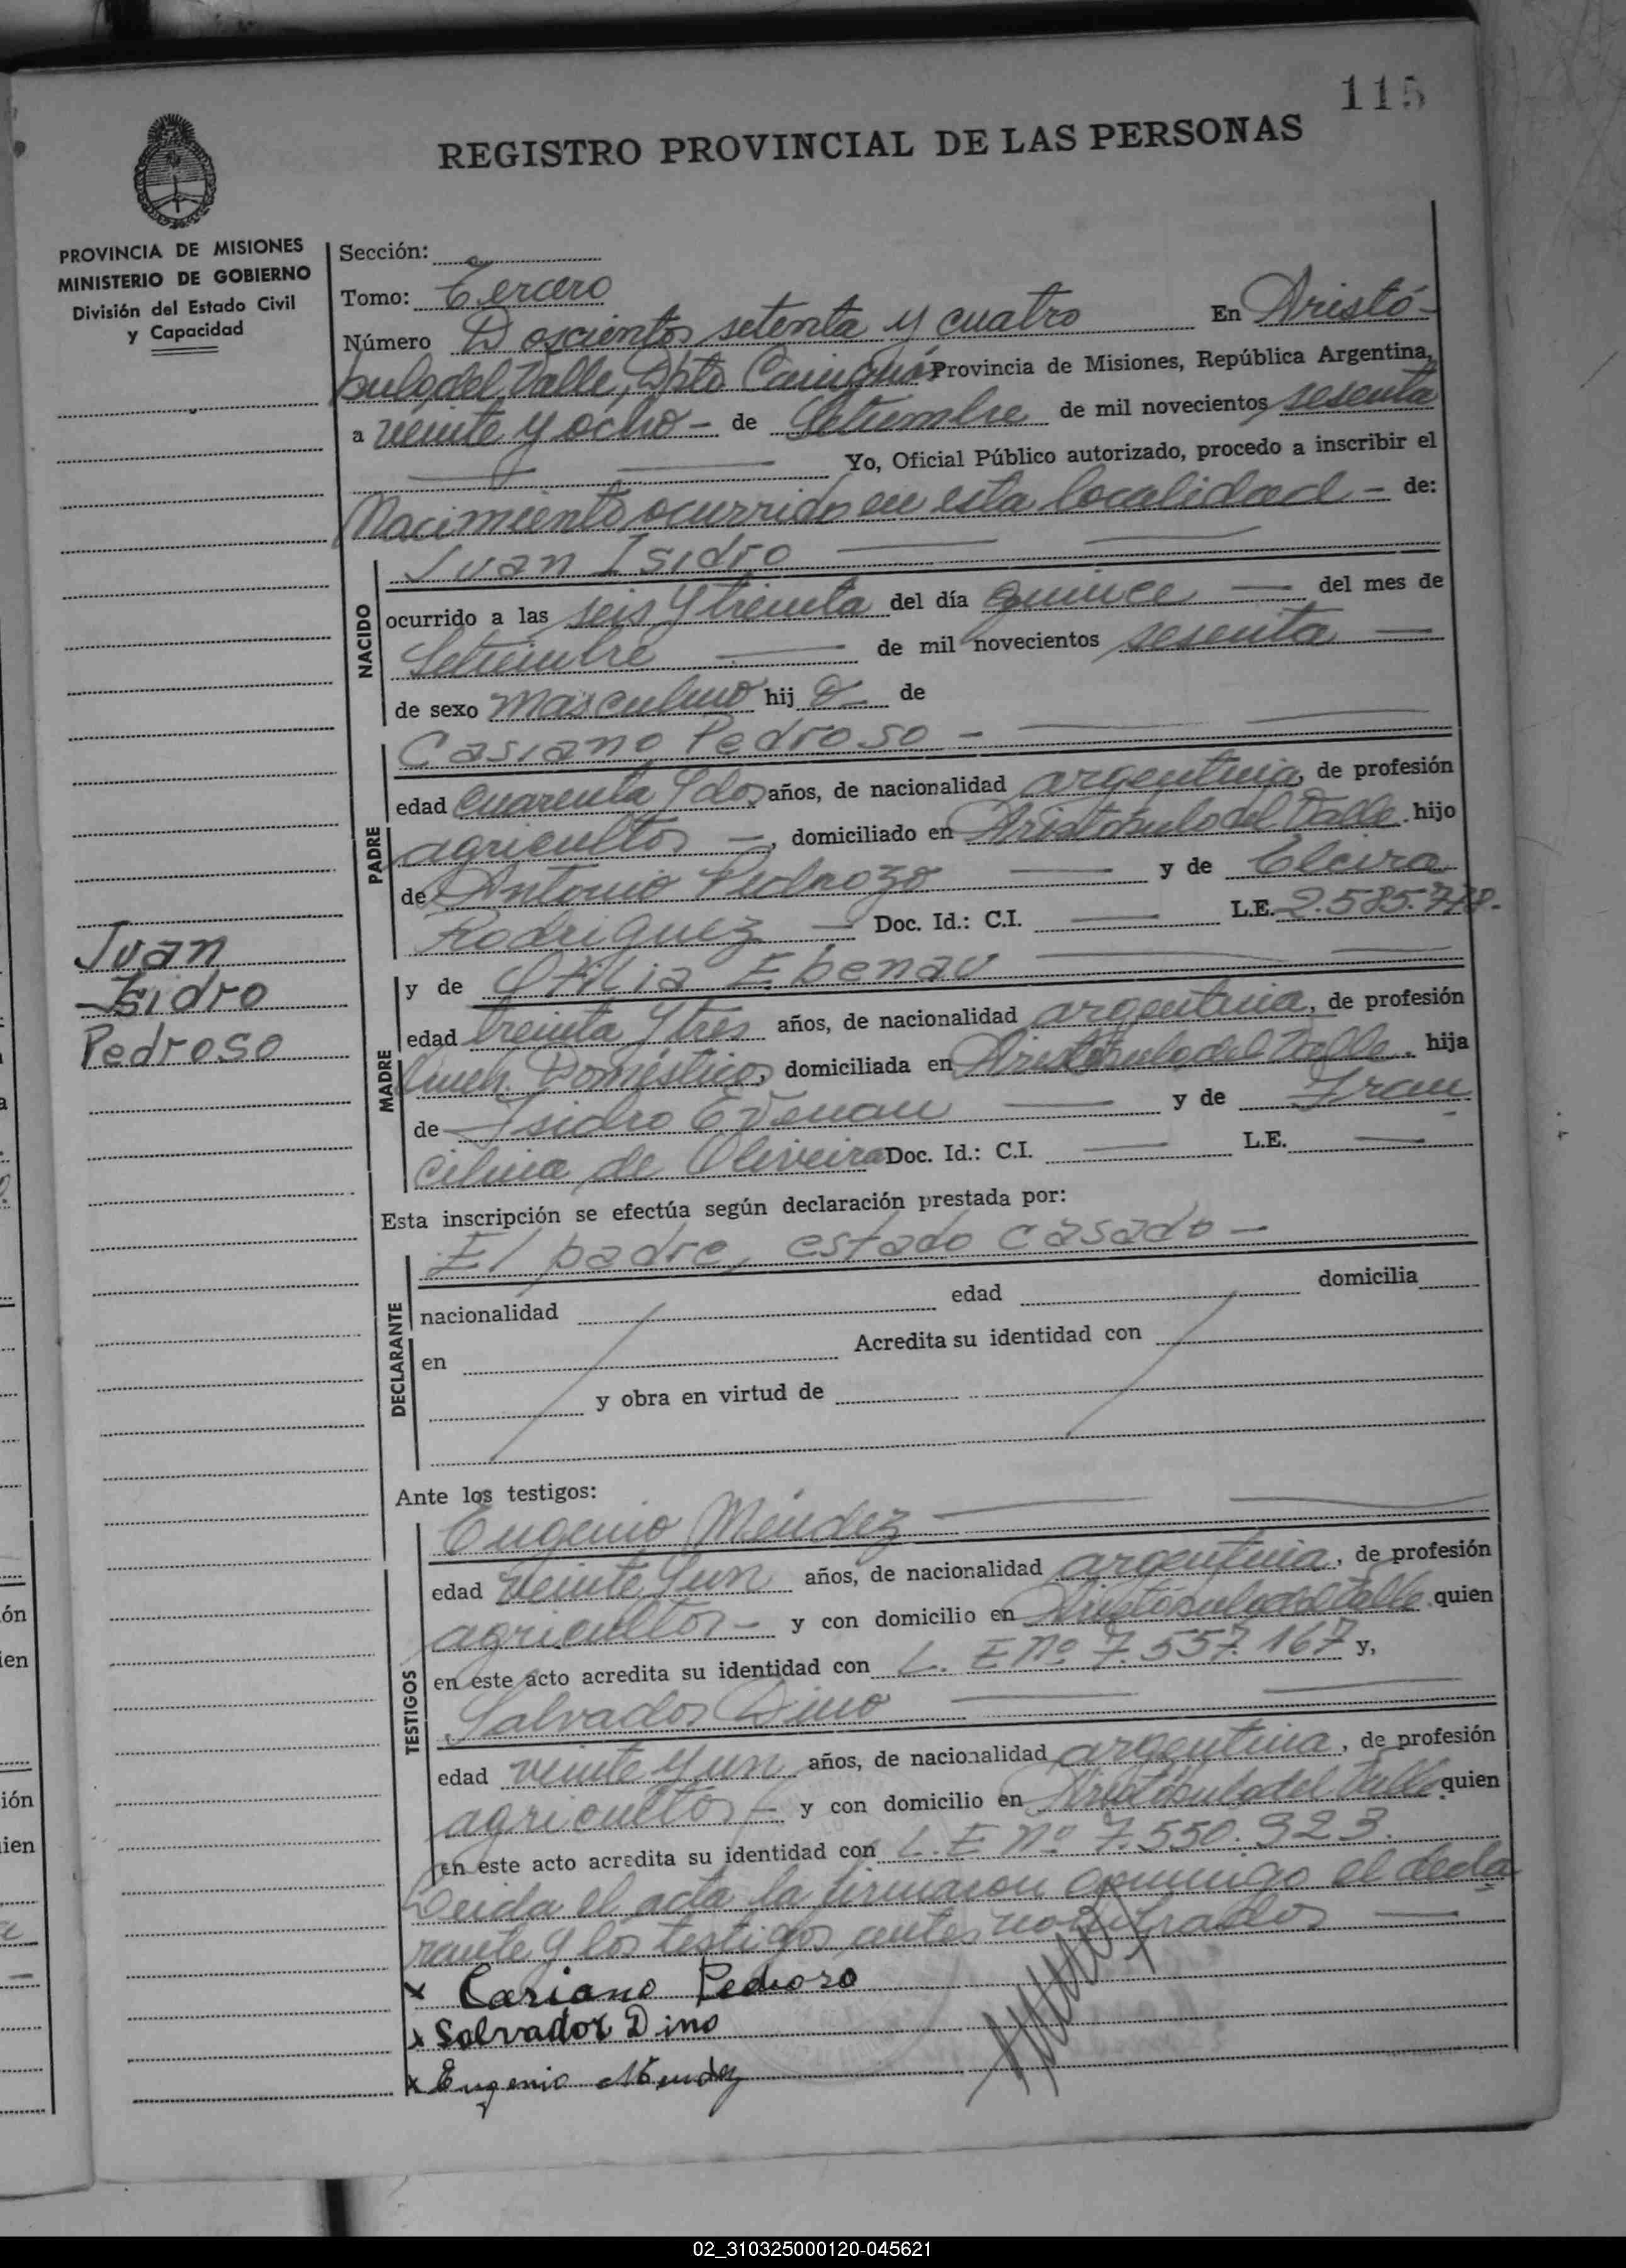 115
REGISTRO PROVINCIAL DE LAS PERSONAS
PROVINCIA DE MISIONES
MINISTERIO DE GOBIERNO
División del Estado Civil
y Capacidad
Juan
Isidro
Pedroso
Sección:
Tomo: Tercero
Número Doscientos setenta y cuatro En Aristó-
bulo del Valle, Dpto Cainguás Provincia de Misiones, República Argentina,
a veinte y ocho - de Setiembre de mil novecientos sesenta
Yo, Oficial Público autorizado, procedo a inscribir el
Nacimiento ocurrido en esta localidad - de:
NACIDO
Juan Isidro
ocurrido a las seis y treinta del día quince del mes de
Setiembre de mil novecientos sesenta
de sexo masculino hij o de
PADRE
Casiano Pedroso -
edad cuarenta y dos años, de nacionalidad argentina, de profesión
agricultor -, domiciliado en Aristóbulo del Valle. hijo
de Antonio Pedrozo y de Elcira
Rodriguez - Doc. Id.: C.I. L.E. 2.585.778.-
MADRE
y de Otilia Ebenau
edad treinta y tres años, de nacionalidad argentina, de profesión
Queh. Domésticos, domiciliada en Aristóbulo del Valle, hija
de Isidro Evenau y de Fran
cilina de Oliveira Doc. Id.: C.I. L.E.
Esta inscripción se efectúa según declaración prestada por:
DECLARANTE
El padre, estado casado -
nacionalidad edad domicilia
en Acredita su identidad con
y obra en virtud de
Ante los testigos:
TESTIGOS
Eugenio Méndez -
edad veinte y un años, de nacionalidad argentina, de profesión
agricultor - y con domicilio en Aristóbulo del Valle quien
en este acto acredita su identidad con L. E nº 7.557.167 y,
Salvador Dino
edad veinte y un años, de nacionalidad argentina, de profesión
agricultor - y con domicilio en Aristóbulo del Valle quien
en este acto acredita su identidad con L.E nº 7.550.923.
Leida el acta la firmaron conmigo el decla
rante y los testigos antes nombrados
x Casiano Pedroso
x Salvador Dino
x Eugenio Mendez
02_310325000120-045621